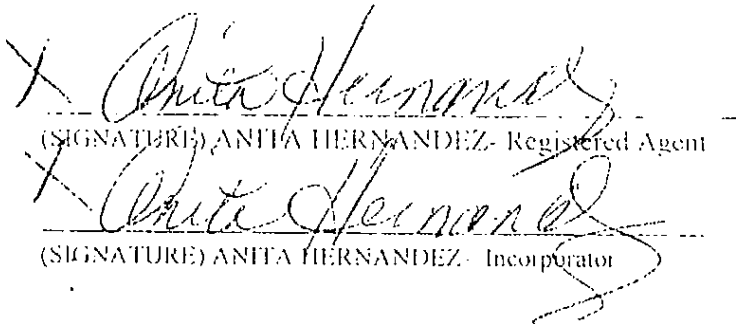 X Anita Hernandez
(SIGNATURE) ANITA HERNANDEZ- Registered Agent
X Anita Hernandez
(SIGNATURE) ANITA HERNANDEZ- Incorporator